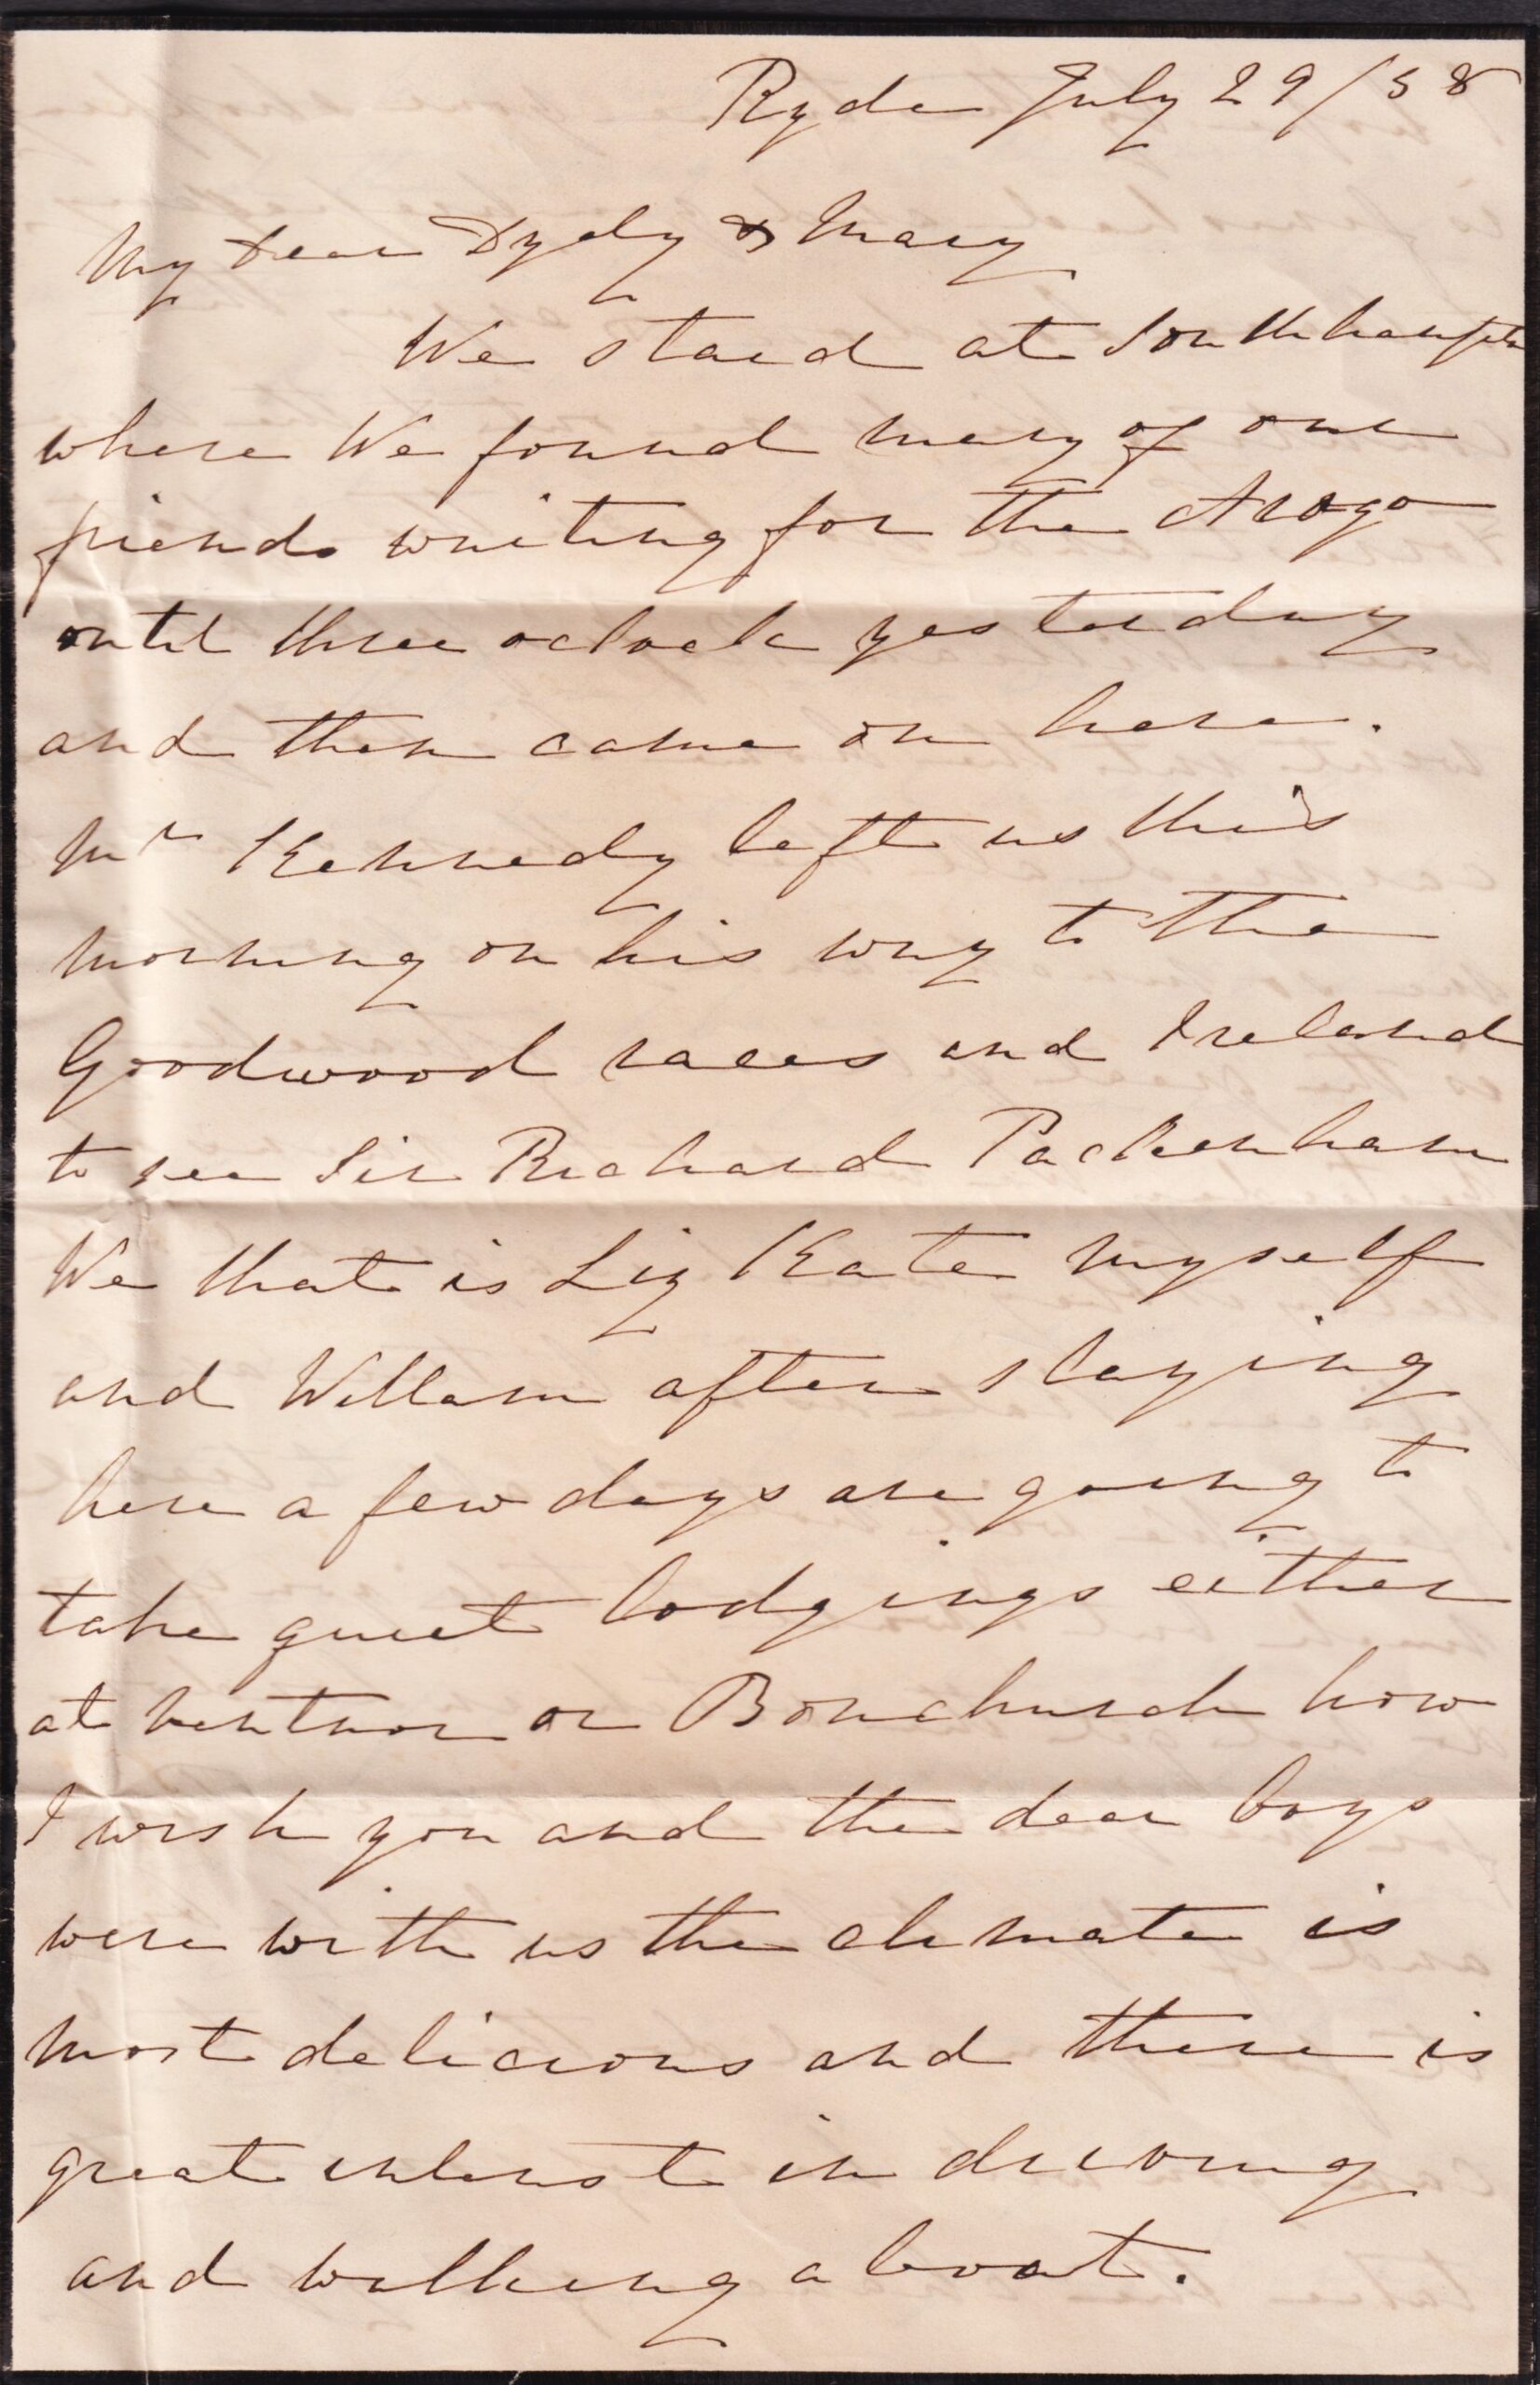 Ryde July 29/58
My dear Dydy & Mary
We staid at Southhampton
where We found many of our
friends waiting for the Arago
until three oclock yesterday
and then came on here.
Mr Kennedy left us this
morning on his way to the
Goodwood races and Ireland
to see Sir Richard Packenham
We that is Liz Kate myself
and Willam after staying
here a few days are going to
take quiet lodgings either
at ventnor or Bonchurch how
I wish you and the dear boys
were with us the climate is
most delicious and there is
great interest in driving
and walking about.